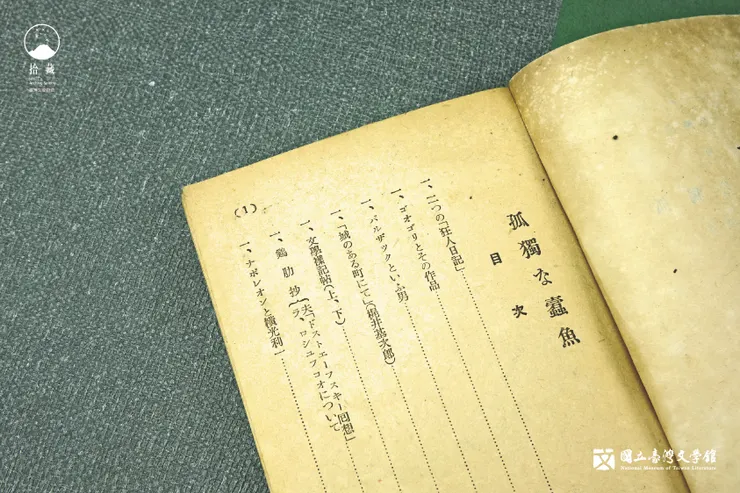 孤獨な蠹魚
目次
一、二つの「狂人日記」
一、ゴオゴリとその作品
一、バルザックといふ男
一、「城のある町にて」(梶井基次郎)
一、文學襍記帖(上、下)
一、鷄肋抄
夫「ドストエーフスキー回想」
ラ、ロシュフコオについて
一、ナポレオンと橫光利一
(1)
拾藏
國立臺灣文學館
National Museum of Taiwan Literature